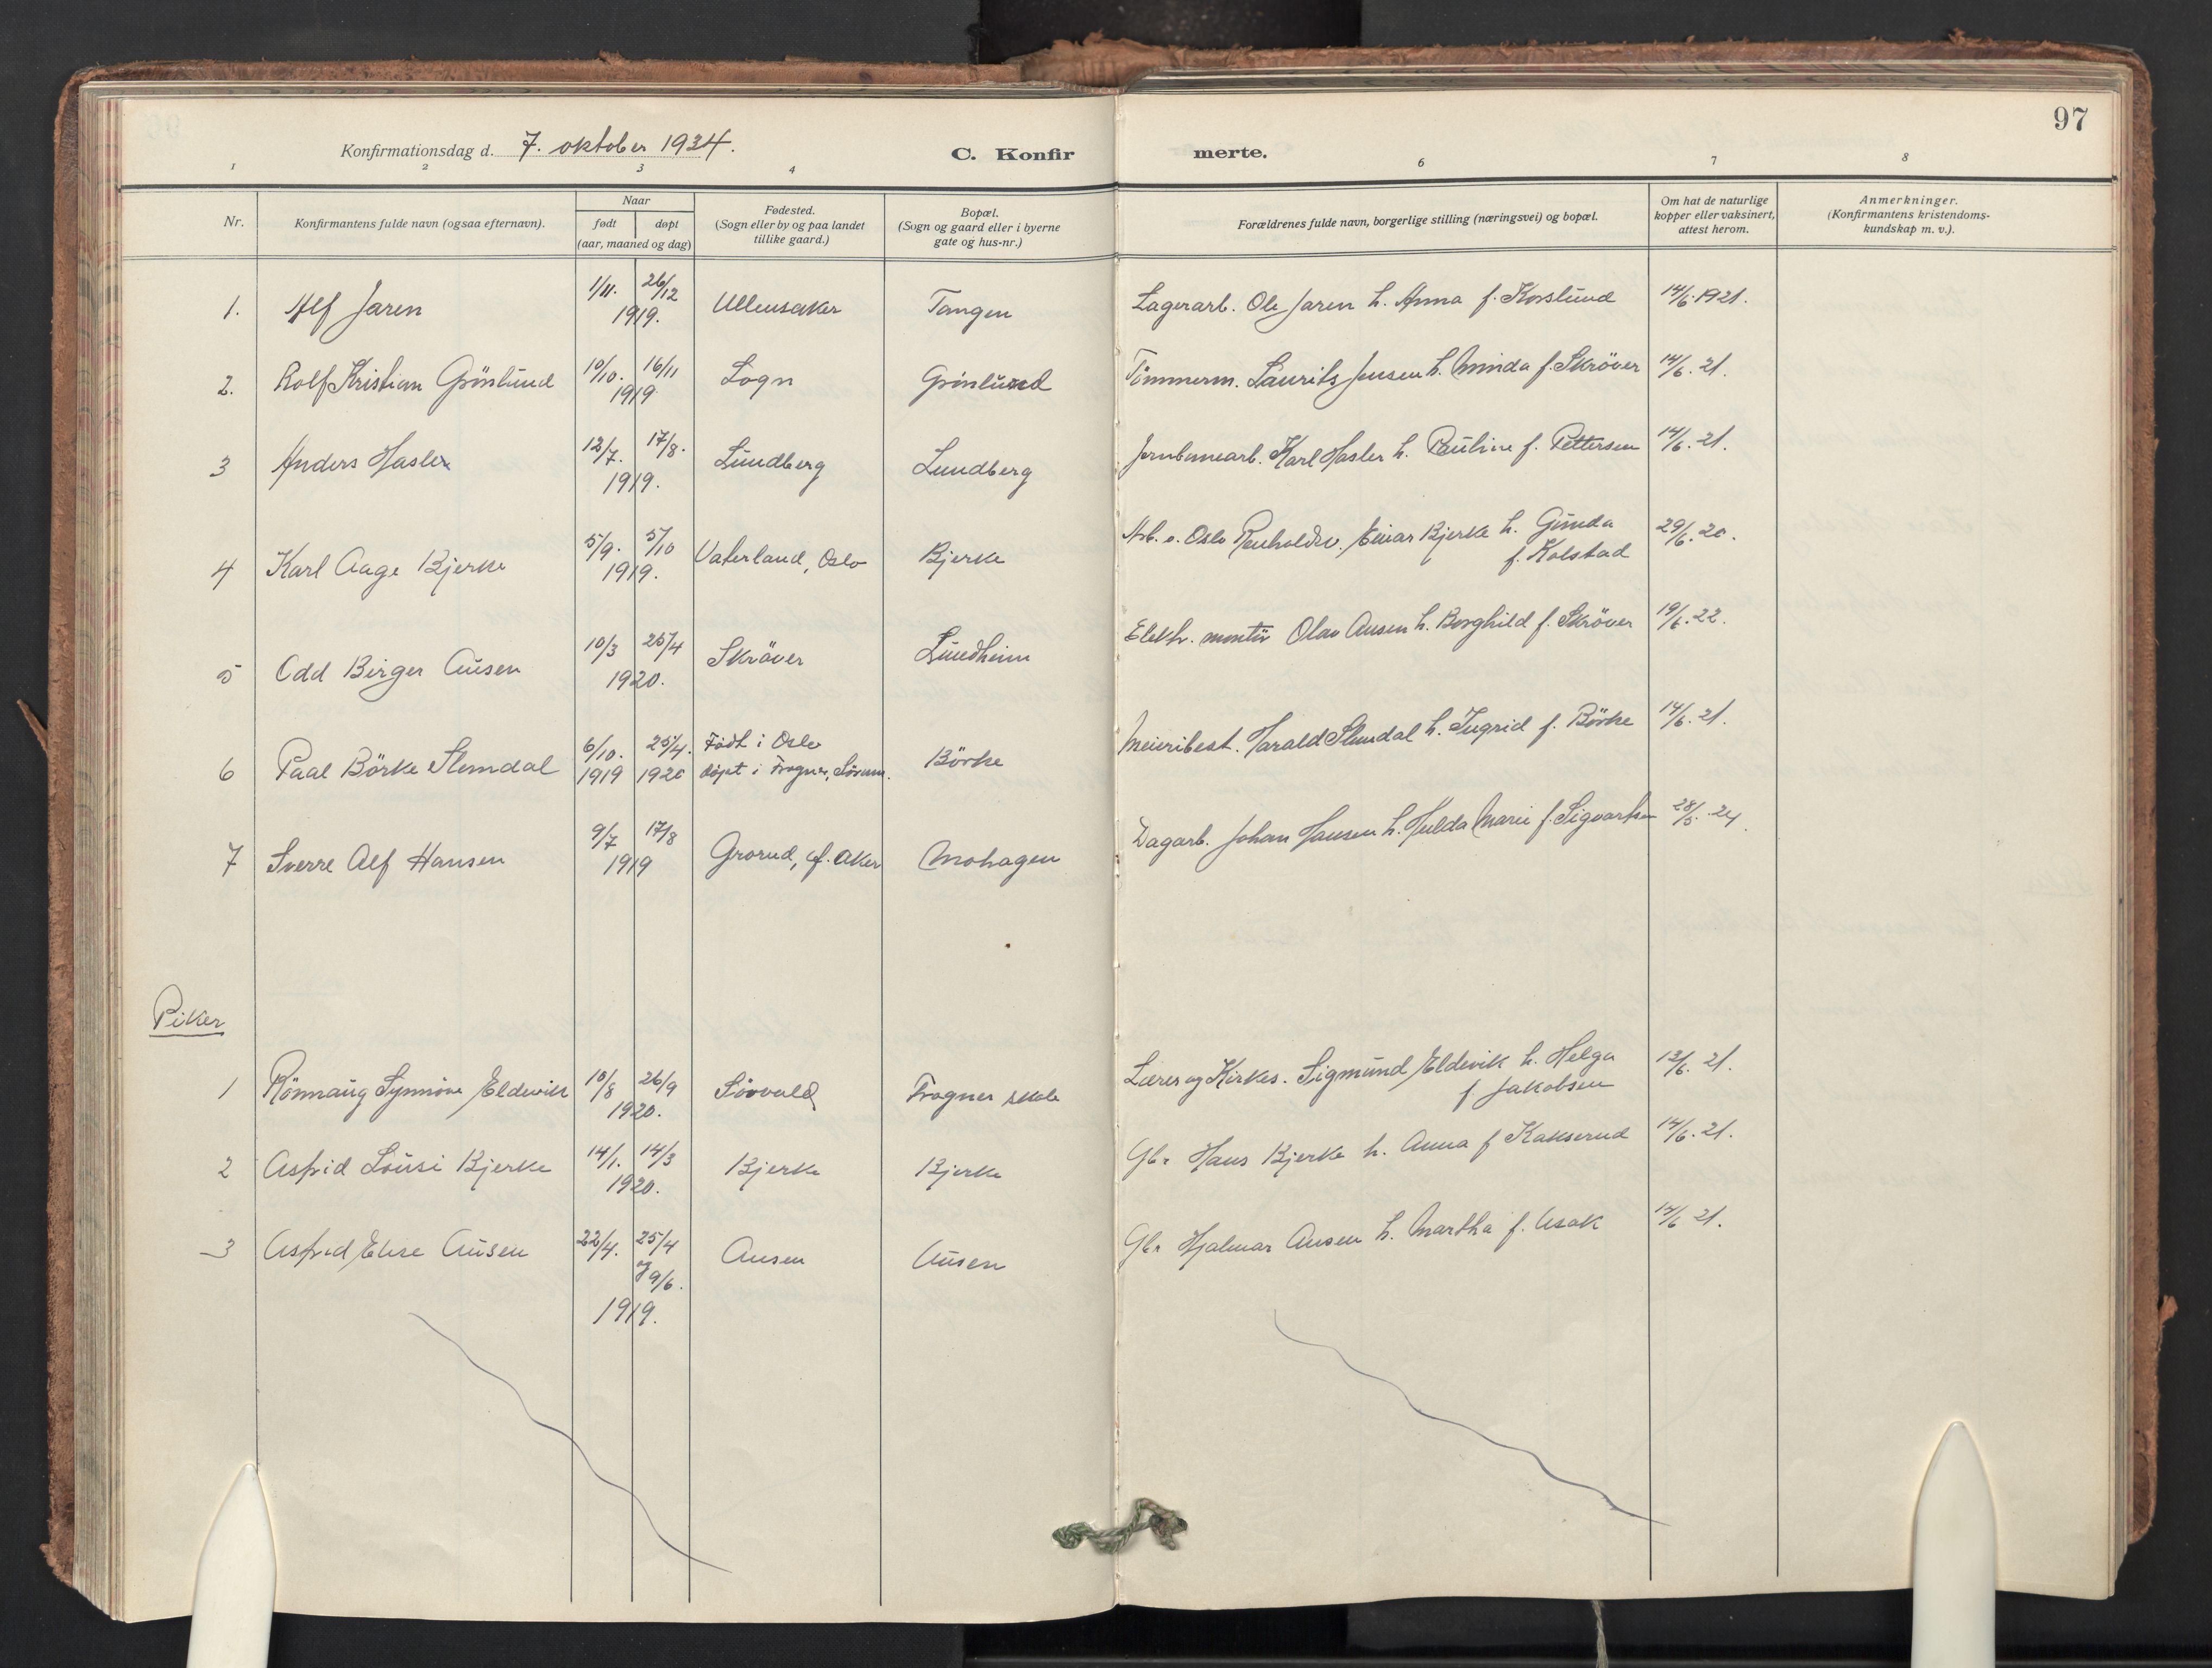 97
Konfirmationsdag d. 7. oktober 1934.
C. Konfirmerte.
1 2 3 4 6 7 8
Nr.
Konfirmantens fulde navn (ogsaa efternavn).
Naar
født døpt
(aar, maaned og dag)
Fødested.
(Sogn eller by og paa landet
tillike gaard.)
Bopæl.
(Sogn og gaard eller i byerne
gate og hus-nr.)
Forældrenes fulde navn, borgerlige stilling (næringsvei) og bopæl.
Om hat de naturlige
kopper eller vaksinert,
attest herom.
Anmerkninger.
(Konfirmantens kristendoms-
kundskap m. v.).
1. Alf Jaren 1/11. 26/12 1919. Ullensaker Tangen Lagerarb. Ole Jaren h. Anna f. Korslund 14/6.1921.
2. Rolf Kristian Grönlund 10/10. 16/11 1919 Sogn Grönlund Tömmerm. Laurits Jensen h. Minda f. Skröver 14/6.21.
3 Anders Hasler 12/7. 17/8. 1919. Lundberg Lundberg Jernbanearb. Karl Hasler h. Pauline f. Pettersen 14/6.21.
4 Karl Aage Bjerke 5/9. 5/10 1919. Vaterland, Oslo Bjerke Arb. v. Oslo Renholdsv. Einar Bjerke h. Gunda
f. Kolstad 29/6.20.
5 Odd Birger Ausen 10/3 25/4 1920. Skröver Lundheim Elektr. montör Olav Ausen h. Borghild f. Skröver 19/6.22.
6 Paal Börke Slemdal 6/10. 1919 25/4. 1920 Født i Oslo
døpt i Frogner, Sörum. Börke Meieribest. Harald Slemdal h. Ingrid f. Börke 14/6.21.
7 Sverre Alf Hansen 9/7 17/8 1919 Grorud, Ø. Aker Mohagen Dagarb. Johan Hansen h. Hulda Marie f. Sigvartsen 28/5.24.
Piker
1 Rönnaug Synnöve Eldevik 10/8 26/9 1920. Sörvald Frogner skole Lærer og Kirkes. Sigmund Eldevik h. Helga
f. Jakobsen 13/6.21.
2 Astrid Lousi Bjerke 14/1. 14/3 1920. Bjerke Bjerke Gbr Hans Bjerke h. Anna f Kakserud 14/6.21.
3 Astrid Elise Ausen 22/4. 25/4 og 9/6. 1919. Ausen Ausen Gbr Hjalmar Ausen h. Martha f. Asak 14/6 21.